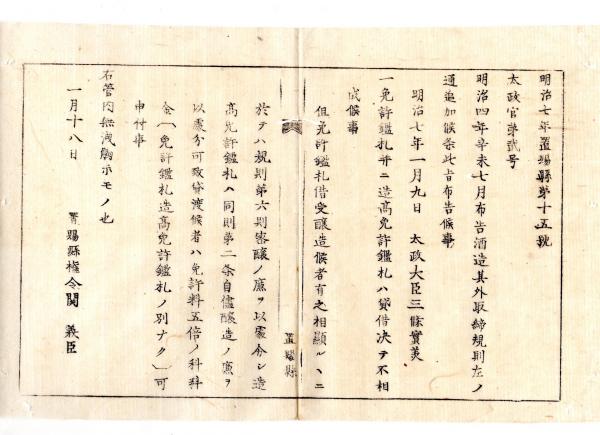 明治七年置賜縣第十五號
太政官第貳号
明治四年辛未七月布告酒造其外取締規則左ノ
通追加候条此旨布告候事
明治七年一月九日　太政大臣三條實美
一免許鑑札并ニ造高免許鑑札ハ貸借決テ不相
成候事
但免許鑑札借受釀造候者有之相顯ルヽニ
置賜縣
於テハ規則第六則密釀ノ廉ヲ以處分シ造
高免許鑑札ハ同則第二条自儘釀造ノ廉ヲ
以處分可致貸渡候者ハ免許料五倍ノ科料
金（免許鑑札造高免許鑑札ノ別ナク）可
申付事
右管内無洩觸示モノ也
一月十八日　置賜縣權令関　義臣